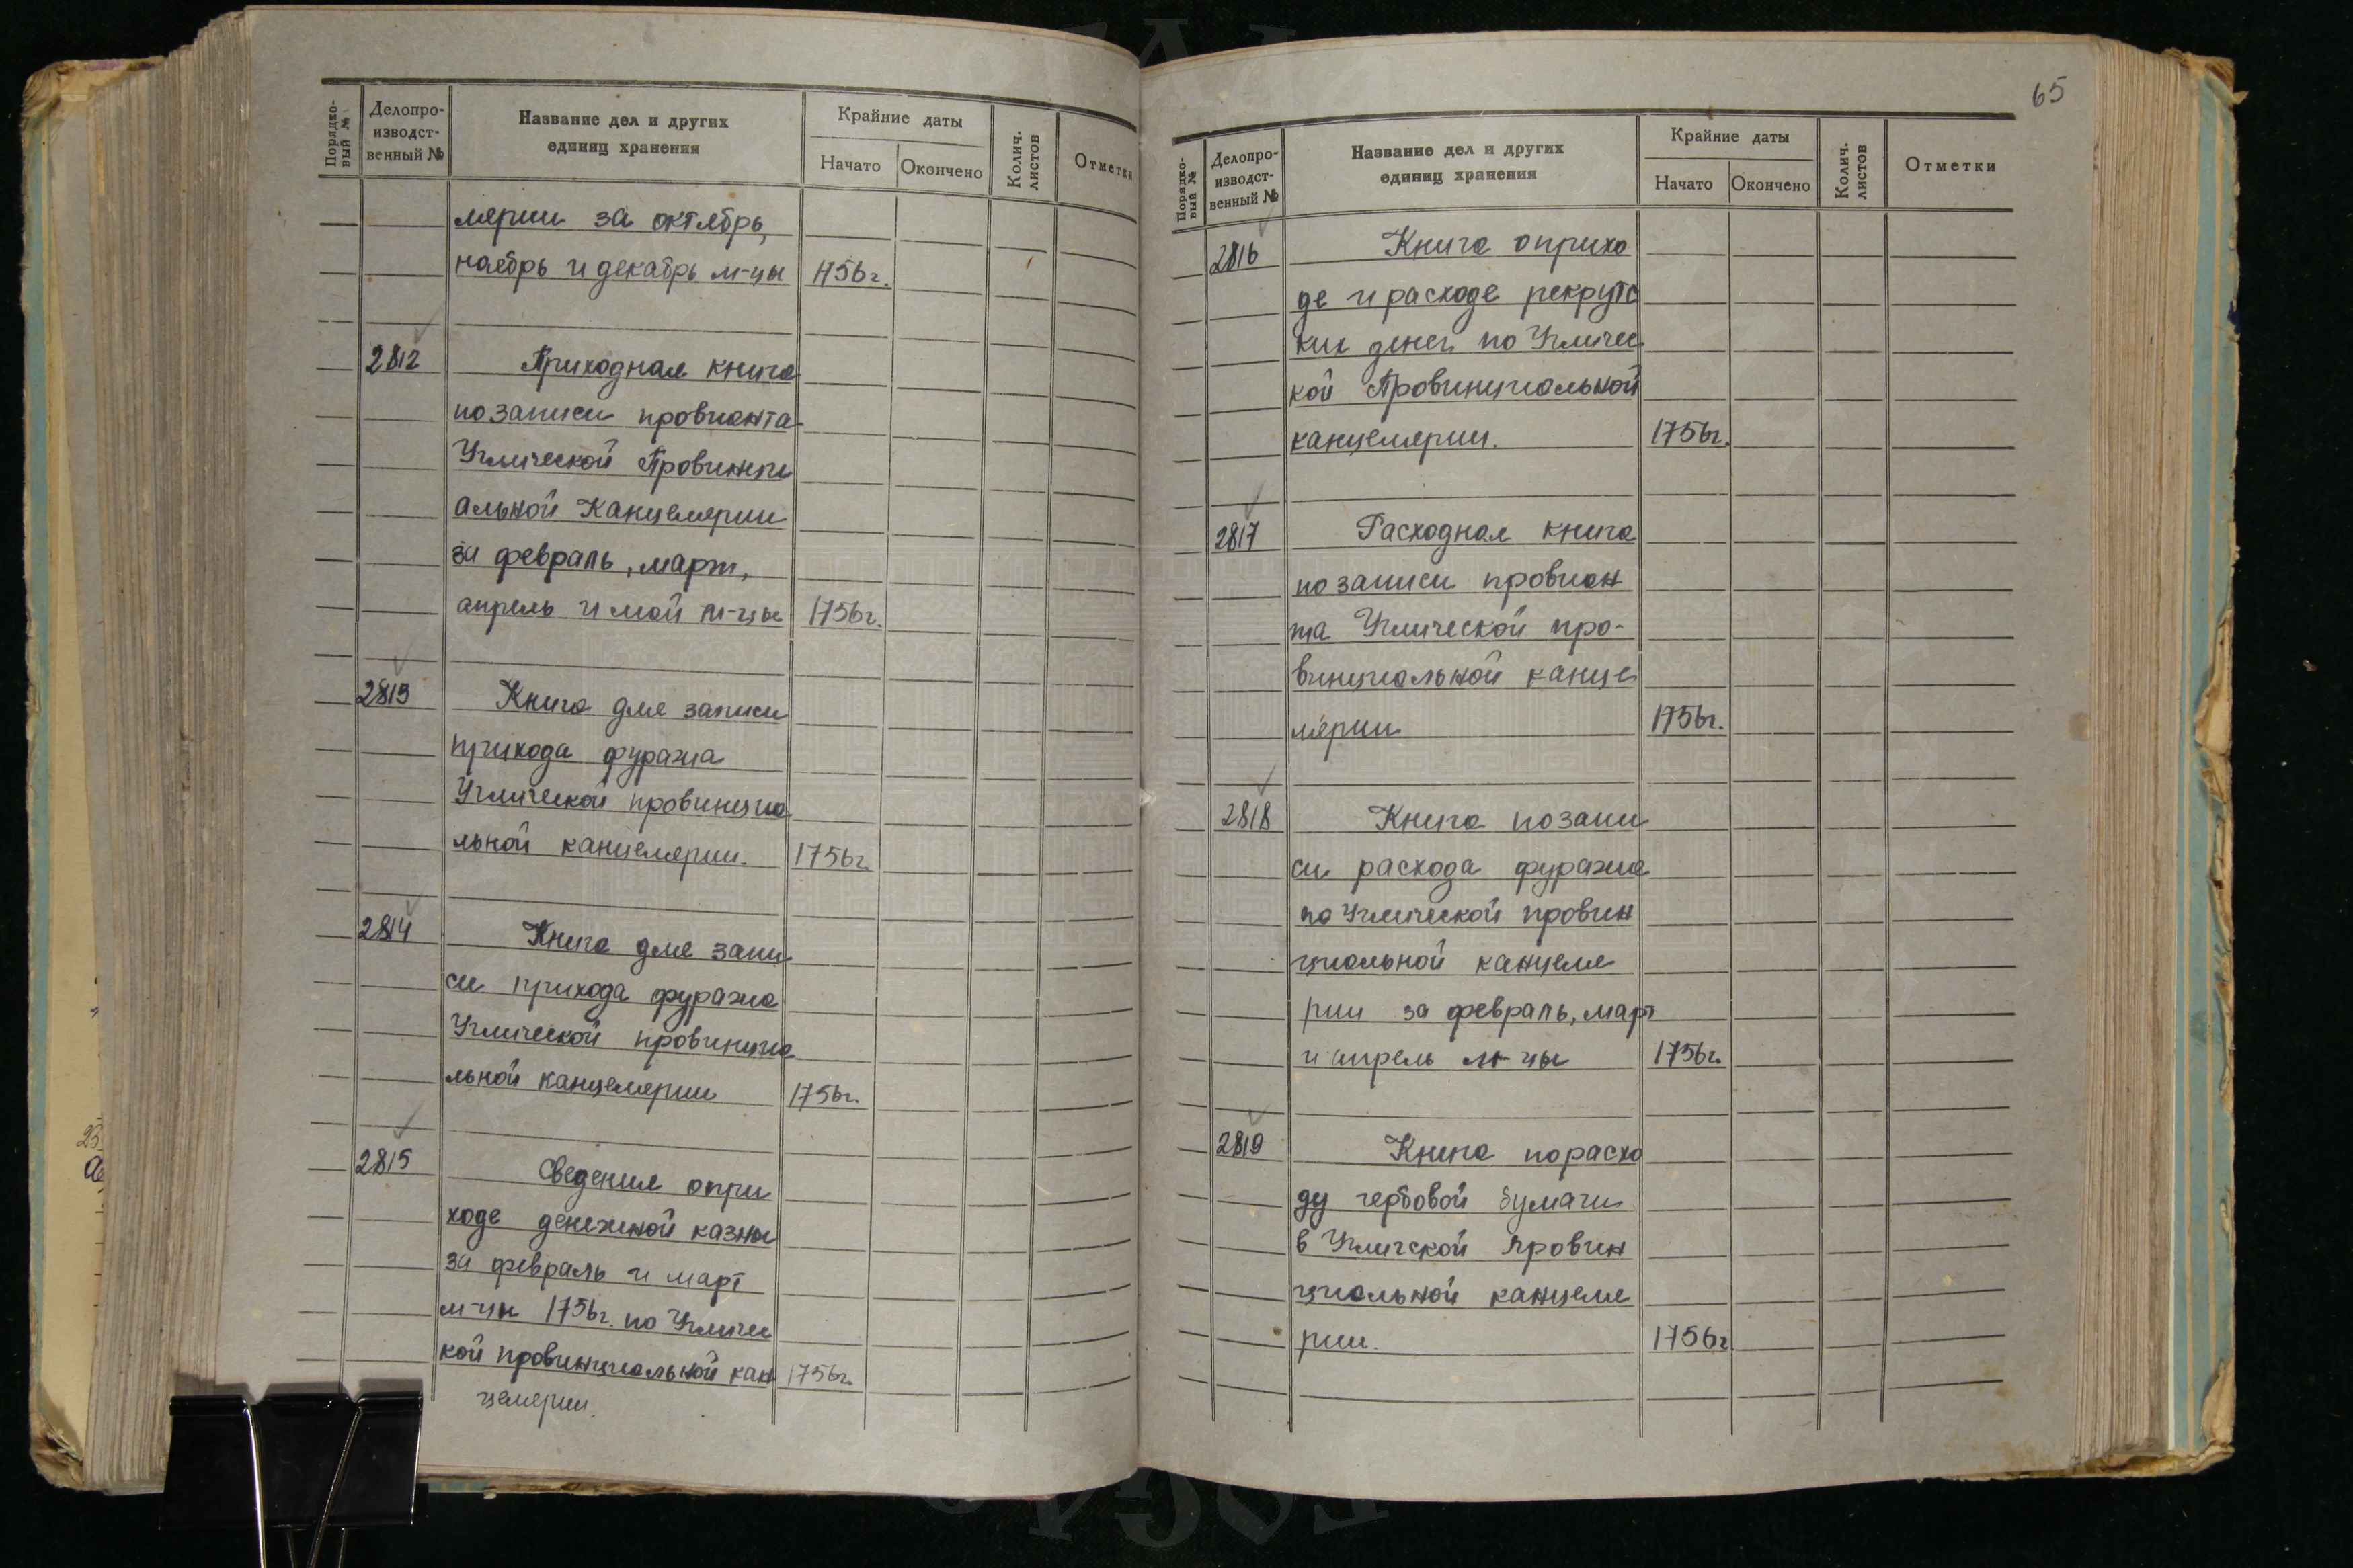 Порядко-
вый №
Делопро-
изводст-
венный №
Название дел и других
единиц хранения
Крайние даты
Начато
Окончено
Колич.
листов
Отметки
лярии за октябрь,
ноябрь и декабрь м-цы 1756г.
2812 Приходная книга
по записи провианта
Углической Провинци
альной Канцелярии
за февраль, март,
апрель и май м-цы 1756г.
2813 Книга для записи
прихода фуража
Углической провинциа
льной канцелярии. 1756г.
2814 Книга для запи
си прихода фуража
Углической провинциа
льной канцелярии 1756г.
2815 Сведения о при
ходе денежной казны
за февраль и март
м-цы 1756г. по Угличес
кой провинциальной кан 1756г.
целярии.
65
Порядко-
вый №
Делопро-
изводст-
венный №
Название дел и других
единиц хранения
Крайние даты
Начато
Окончено
Колич.
листов
Отметки
2816 Книга о прихо
де и расходе рекрутс
ких денег по Угличес
кой Провинциальной
канцелярии. 1756г.
2817 Расходная книга
по записи провиан
та Углической про-
винциальной канце
лярии 1756г.
2818 Книга по запи
си расхода фуража
по Углической провин
циальной канцеля
рии за февраль, март
и апрель м-цы 1756г.
2819 Книга по расхо
ду гербовой бумаги
в Угличской провин
циальной канцеля
рии. 1756г